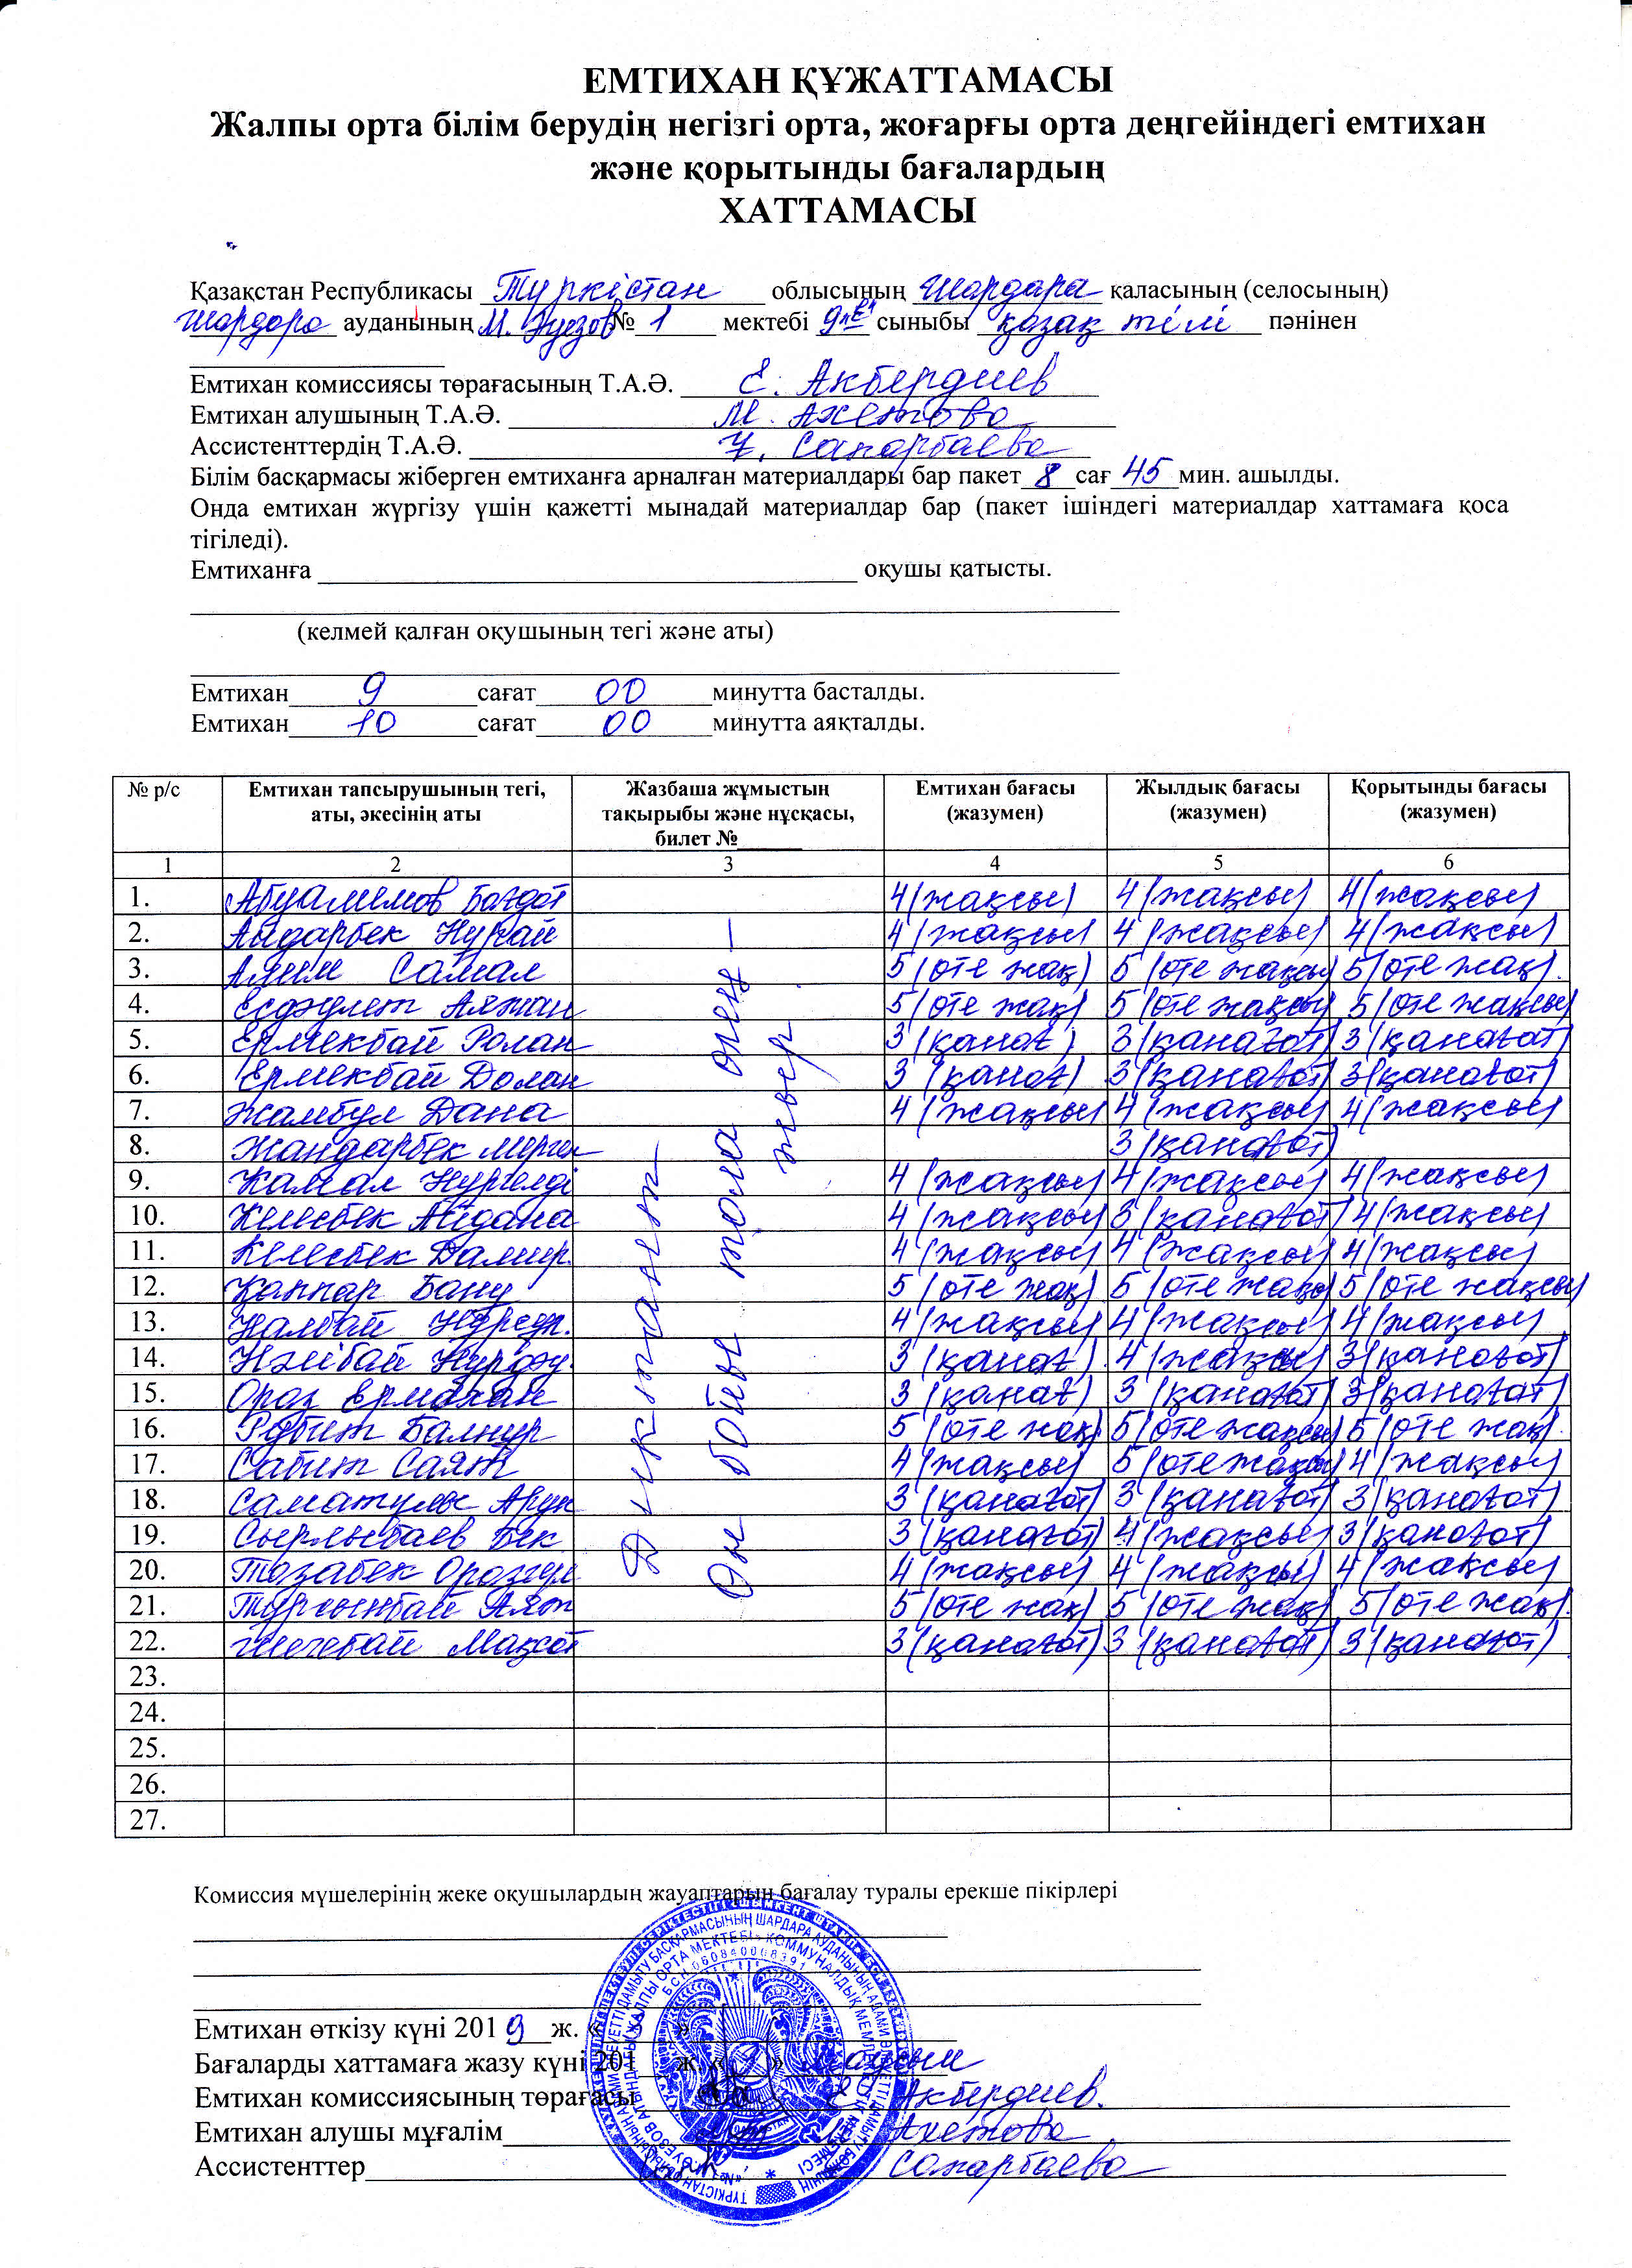 ЕМТИХАН ҚҰЖАТТАМАСЫ
Жалпы орта білім берудің негізгі орта, жоғарғы орта деңгейіндегі емтихан
және қорытынды бағалардың
ХАТТАМАСЫ
Қазақстан Республикасы Түркістан облысының Шардара қаласының (селосының)
Шардара ауданының М. Әуезов № 1 мектебі 9 сыныбы қазақ тілі пәнінен
Емтихан комиссиясы төрағасының Т.А.Ә. Е. Акбердиев
Емтихан алушының Т.А.Ә. М. Ахетова
Ассистенттердің Т.А.Ә. Сапарбаева
Білім басқармасы жіберген емтиханға арналған материалдары бар пакет 8 сағ 45 мин. ашылды.
Онда емтихан жүргізу үшін қажетті мынадай материалдар бар (пакет ішіндегі материалдар хаттамаға қоса
тігіледі).
Емтиханға оқушы қатысты.
(келмей қалған оқушының тегі және аты)
Емтихан 9 сағат 00 минутта басталды.
Емтихан 10 сағат 00 минутта аяқталды.
№ р/с Емтихан тапсырушының тегі, аты, әкесінің аты Жазбаша жұмыстың тақырыбы және нұсқасы, билет № Емтихан бағасы (жазумен) Жылдық бағасы (жазумен) Қорытынды бағасы (жазумен)
1 2 3 4 5 6
Диктант
Ән бойы тола өлең – жыр.
1. 4 (жақсы) 4 (жақсы) 4 (жақсы)
2. Айдарбек Нұрай 4 (жақсы) 4 (жақсы) 4 (жақсы)
3. Самал 5 (өте жақ) 5 (өте жақсы) 5 (өте жақ).
4. Аяжан 5 (өте жақ) 5 (өте жақсы) 5 (өте жақсы)
5. Ермекбай Ролан 3 (қанағ) 3 (қанағат) 3 (қанағат)
6. Ермекбай Долан 3 (қанағ) 3 (қанағат) 3 (қанағат)
7. Жамбул Дана 4 (жақсы) 4 (жақсы) 4 (жақсы)
8. Жандарбек Мерген 3 (қанағат)
9. Камал Нургелді 4 (жақсы) 4 (жақсы) 4 (жақсы)
10. Келесбек Айдана 4 (жақсы) 3 (қанағат) 4 (жақсы)
11. Келесбек Дамир. 4 (жақсы) 4 (жақсы) 4 (жақсы)
12. Қаппар Бану 5 (өте жақ) 5 (өте жақсы) 5 (өте жақсы)
13. 4 (жақсы) 4 (жақсы) 4 (жақсы)
14. 3 (қанағ) 4 (жақсы) 3 (қанағат)
15. Ораз Ермахан 3 (қанағ) 3 (қанағат) 3 (қанағат)
16. Балнур 5 (өте жақ) 5 (өте жақсы) 5 (өте жақ).
17. Сабит Саят 4 (жақсы) 5 (өте жақсы) 4 (жақсы)
18. Саматулы 3 (қанағат) 3 (қанағат) 3 (қанағат)
19. Сырлыбаев Бек. 3 (қанағат) 4 (жақсы) 3 (қанағат)
20. Тазабек Оразгүл 4 (жақсы) 4 (жақсы) 4 (жақсы)
21. Тұрсынбай 5 (өте жақ) 5 (өте жақ) 5 (өте жақ).
22. Мақсат 3 (қанағат) 3 (қанағат) 3 (қанағат).
23.
24.
25.
26.
27.
Комиссия мүшелерінің жеке оқушылардың жауаптарын бағалау туралы ерекше пікірлері
Емтихан өткізу күні 2019 ж. « »
Бағаларды хаттамаға жазу күні 201 ж. « » маусым
Емтихан комиссиясының төрағасы Е. Акбердиев.
Емтихан алушы мұғалім Ахетова
Ассистенттер Сапарбаева